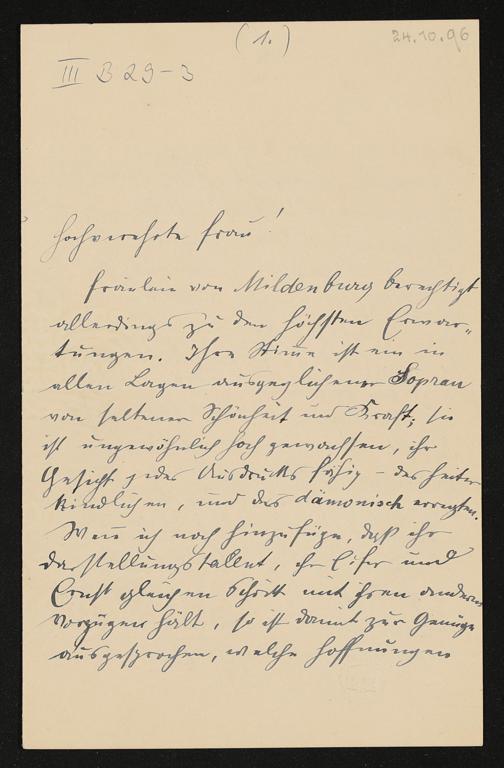 (1.)
24.10.96
III B 29-3
Hochverehrte Frau!
Fräulein von Mildenburg berechtigt
allerdings zu den höchsten Erwar„
tungen. Ihre Stimme ist ein in
allen Lagen ausgeglichener Sopran
von seltener Schönheit und Kraft; sie
ist ungewöhnlich hoch gewachsen, ihr
Gesicht jedes Ausdrucks fähig – des heiter
kindlichen, und des dämonisch erregten.
Wenn ich noch hinzufüge, daß ihr
Darstellungstalent, ihr Eifer und
Ernst gleichen Schritt mit ihren anderen
Vorzügen hält, so ist damit zur Genüge
ausgesprochen, welche Hoffnungen